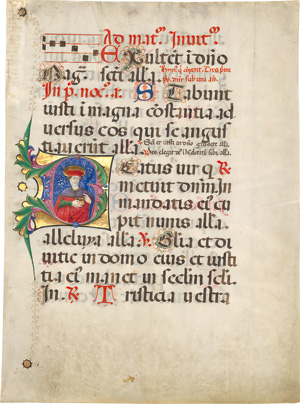 Ad mat. Invit.
Exultet i dño
sci alla.
In p. noct. a. Stabunt
iusti i magna constantia ad
versus eos qui se angus
tiaverūt alla.
Beatus vir q R
metuit dnm. In
mandatis eī cu
pit nimis alla.
alleluya alla. V. Glia et di
vitie in domo eius et iusti
tia eī manet in seclm scli.
In. R Tristicia vestra